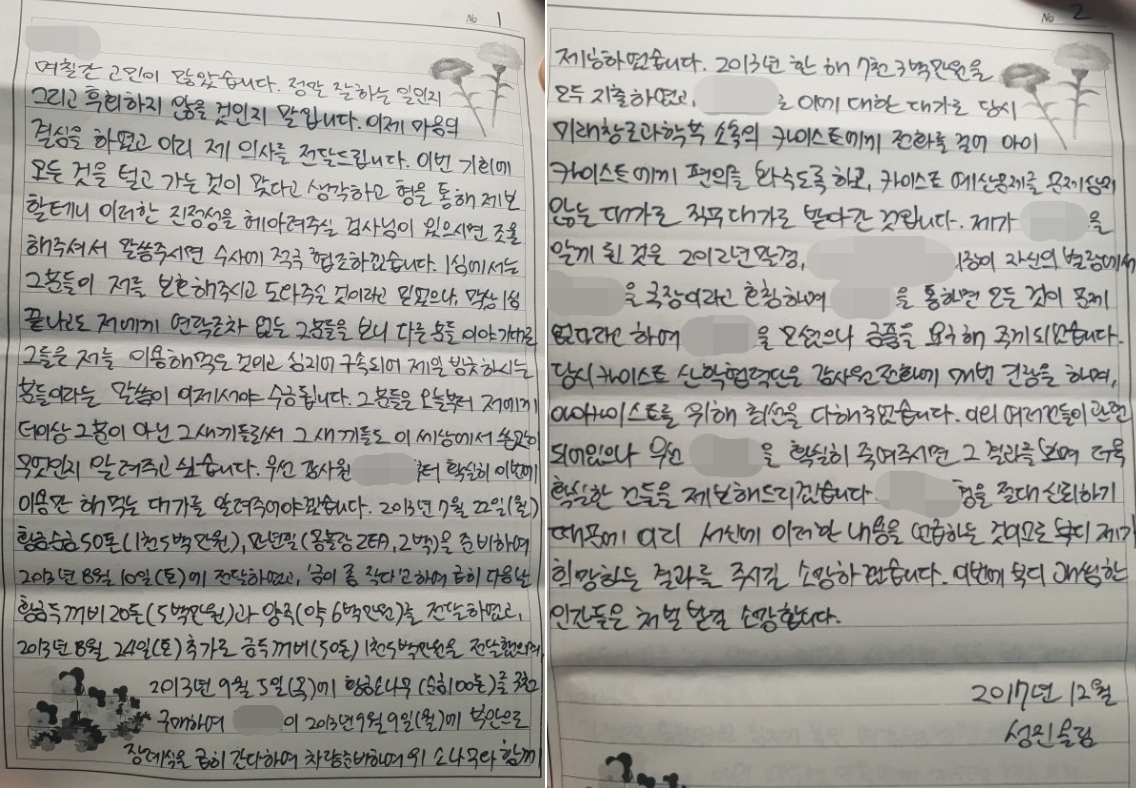 No 1
며칠간 고민이 많았습니다. 정말 잘하는 일인지
그리고 후회하지 않을 것인지 말입니다. 이제 마음의
결심을 하였고 이리 제 의사를 전달드립니다. 이번 기회에
모든 것을 털고 가는 것이 맞다고 생각하고 형을 통해 제보
할테니 이러한 진정성을 헤아려주실 검사님이 있으시면 조율
해주셔서 말씀주시면 수사에 적극 협조하겠습니다. 1심에서는
그분들이 저를 보호해주시고 도와주실 것이라고 믿었으나, 막상 1심
끝나고도 저에게 연락조차 없는 그분들을 보니 다른 분들 이야기대로
그들은 저를 이용해먹은 것이고 심리이 구속되어 제일 방긋하시는
분들이라는 말씀이 이제서야 수긍됩니다. 그분들은 오늘부터 저에게
더이상 그분이 아닌 그새끼들로서 그 새끼들도 이 세상에서 쓴맛이
무엇인지 알려주고 싶습니다. 우선 감사원 부터 확실히 이번에
이용만 해먹는 대가를 알려주어야겠습니다. 2013년 7월 22일(월)
황금순금50돈(1천5백만원), 만년필(몽블랑 2EA, 2백)을 준비하여
2013년 8월 10일(토)에 전달하였고, '금이 좀 작다'고 하여 급히 다음날
황금두꺼비 20돈(5백만원)과 양주(약 6백만원)를 전달하였고,
2013년 8월 24일(토) 추가로 금두꺼비(50돈) 1천5백만원을 전달했으며,
2013년 9월 5일(목)에 황금소나무(순금100돈)를 3천2
구매하여 이 2013년9월9일(월)에 북안으로
장례식을 급히 간다하여 차량준비하여 위 소나무와 함께
No 2
제공하였습니다. 2013년 한 해 7천 3백만원을
모두 지출하였고, 로 이에 대한 대가로 당시
미래창조과학부 소속의 카이스트에게 전화를 걸어 아이
카이스트에게 편의를 봐주도록 하고, 카이스트 예산문제를 문제삼지
않는 대가로 직무대가로 받아간 것입니다. 제가 을
알게 된 것은 2012년말경, 시장이 자신의 별장에서
을 국장이라고 호칭하며 을 통하면 모든 것이 문제
없다라고 하여 을 모셨으나 금품을 요구해 주게되었습니다.
당시 카이스트 산학협력단은 감사원 전화에 매번 긴장을 하며,
아이카이스트를 위해 최선을 다해주었습니다. 이리 여러건들이 관련
되어있으나 우선 을 확실히 죽여주시면 그 결과를 보며 더욱
확실한 건들을 제보해드리겠습니다. 형을 절대 신뢰하기
때문에 이리 서신에 이러한 내용을 언급하는 것이므로 부디 제가
희망하는 결과를 주시길 소망하겠습니다. 이번에 부디 개쌍한
인간들은 처벌 받길 소망합니다.
2017년 12월
성진올림